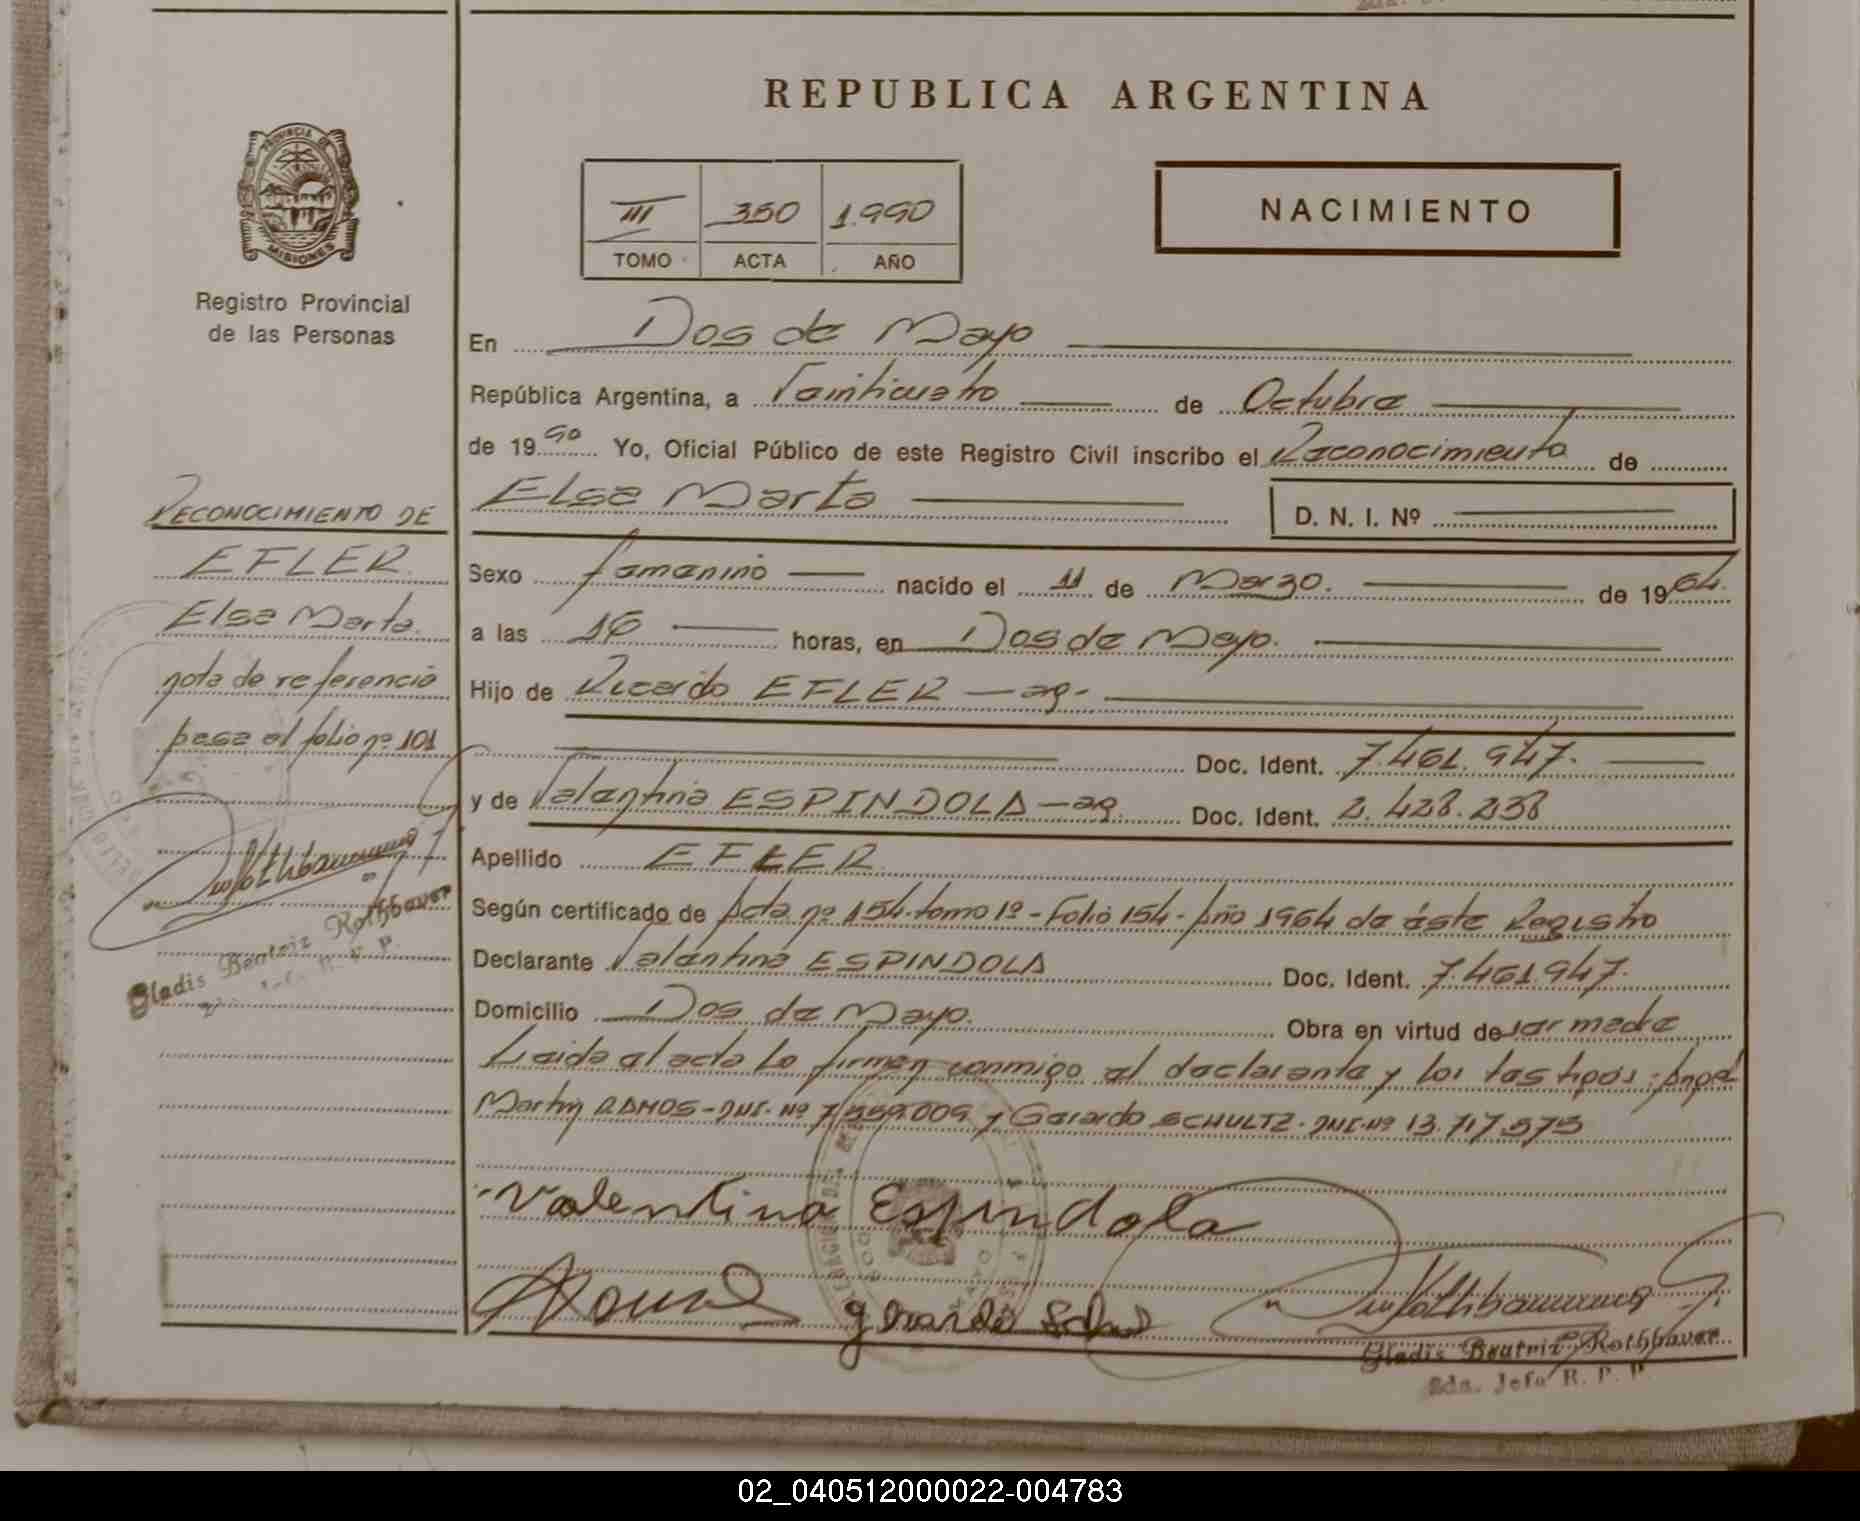 REPUBLICA ARGENTINA
PROVINCIA DE
MISIONES
Registro Provincial
de las Personas
III 350 1.990
TOMO ACTA AÑO
NACIMIENTO
En Dos de Mayo
República Argentina, a Vainticuatro de Octubre
de 1990 Yo, Oficial Público de este Registro Civil inscribo el Reconocimiento de
Elsa Marta D. N. I. Nº
Sexo femenino nacido el 11 de Marzo. de 1964.
a las 16 horas, en Dos de Mayo.
Hijo de Ricardo EFLER - ag-
Doc. Ident. 7.461.947.
y de Valentina ESPINDOLA - ag. Doc. Ident. 2.428.238
Apellido EFLER
Según certificado de Acta nº 154. tomo 1º - Folio 154 - Año 1964 de éste Registro
Declarante Valentina ESPINDOLA Doc. Ident. 7.461.947.
Domicilio Dos de Mayo. Obra en virtud de ser madre
Leida el acta la firman conmigo el declarante y los testigos: Angel
Martin RAMOS - DNI. Nº 7.559.009 y Gerardo SCHULTZ. DNI. Nº 13.717.575
Valentina Espindola
Gerardo
Gladis Beatriz Rothbauer
Sda. Jefa R. P. P
RECONOCIMIENTO DE
EFLER
Elsa Marta.
nota de referencia
pasa al folio nº 101
Gladis Beatriz Rothbauer
02_040512000022-004783